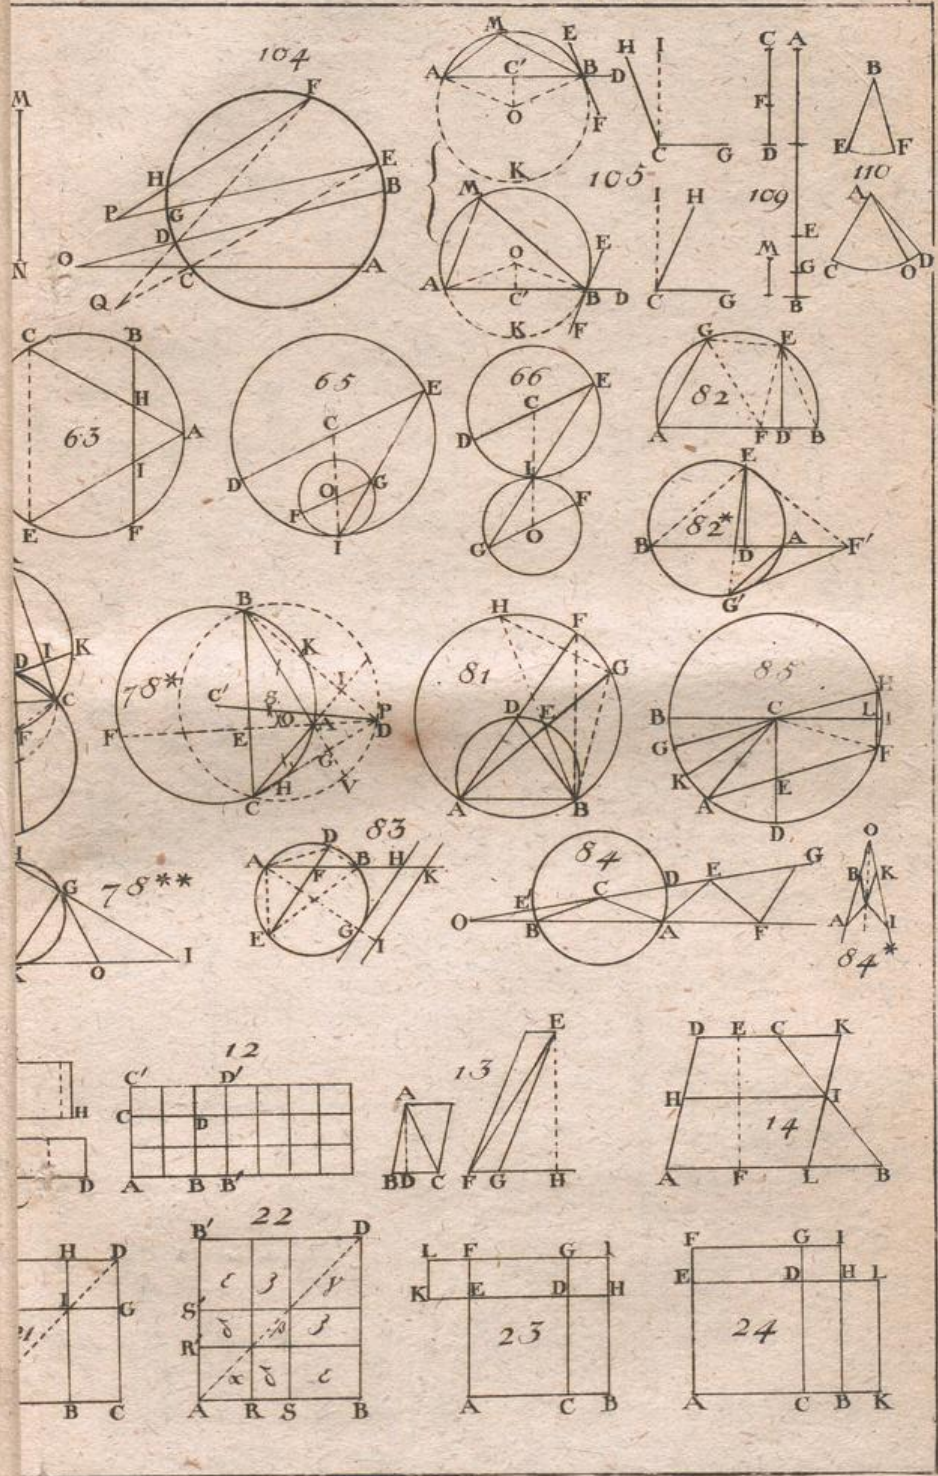 104
M
N
F
H
E
B
P
G
D
O
C
A
Q
M
A
C'
B
E
D
O
F
K
H
I
C
G
105
M
E
O
A
C'
B
D
K
F
I
H
C
G
C
A
F
D
109
M
E
G
B
B
E
F
110
A
C
O
D
C
B
H
63
A
I
E
F
65
E
C
D
O
G
F
I
66
E
C
D
L
F
G
O
G
E
82
A
F
D
B
E
82*
B
D
A
F'
G'
I
K
D
C
F
78*
B
K
C'
I
8
O
P
F
E
A
D
G
H
V
C
H
F
81
G
D
E
A
B
85
H
B
C
L
I
G
F
K
A
E
D
I
G
78**
K
O
I
83
D
A
B
H
F
K
E
G
I
84
G
C
D
E
E'
O
B
A
F
O
B
K
A
I
84*
H
D
12
C'
D'
C
D
A
B
B'
13
A
B
D
C
E
F
G
H
D
E
C
K
H
I
14
A
F
L
B
H
D
I
G
21
B
C
22
B'
D
ε
3
γ
S'
δ
β
3
R'
α
δ
ε
A
R
S
B
L
F
G
I
K
E
D
H
23
A
C
B
F
G
I
E
D
H
L
24
A
C
B
K